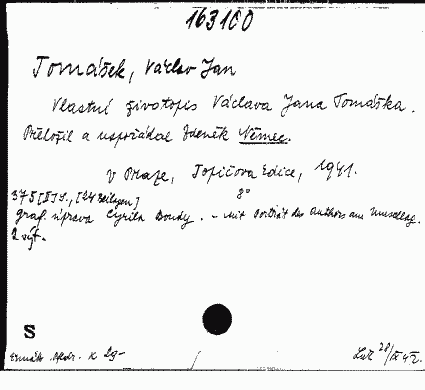 163100
Tomášek, Václav Jan
Vlastní životopis Václava Jana Tomáška.
Přeložil a uspořádal Zdeněk Němec.
V Praze, Topičova Edice, 1941.
375 [II] S., [24 Beilagen] 8°
graf. úprava Cyrila Boudy. - Mit Porträt des Authors am Umschlag.
2. výt.
S
K 29-
28/IX 42.